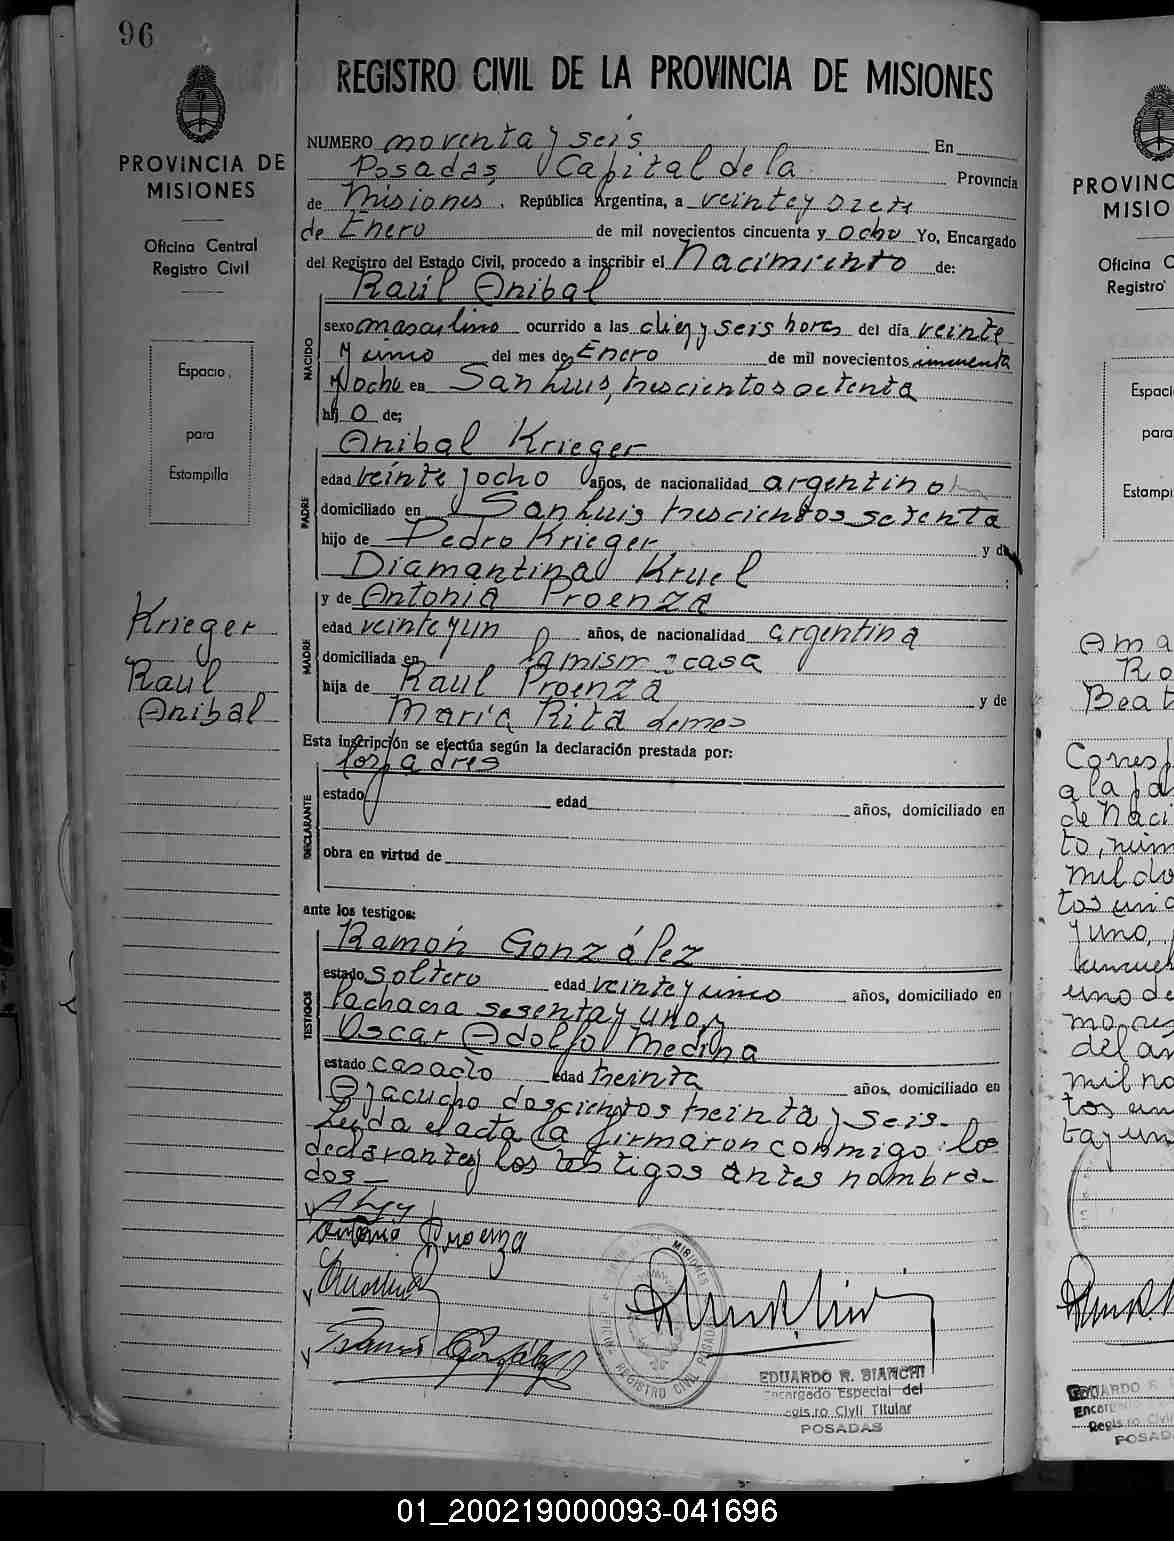 96
PROVINCIA DE
MISIONES
Oficina Central
Registro Civil
Espacio
para
Estampilla
Krieger
Raul
Anibal
REGISTRO CIVIL DE LA PROVINCIA DE MISIONES
NUMERO noventa y seis En
Posadas, Capital de la Provincia
de Misiones, República Argentina, a veinte y siete
de Enero de mil novecientos cincuenta y ocho Yo, Encargado
del Registro del Estado Civil, procedo a inscribir el Nacimiento de:
Raúl Anibal
NACIDO
sexo masculino ocurrido a las diez y seis horas del día veinte
y cinco del mes de Enero de mil novecientos cincuenta
y ocho en San Luis, trescientos setenta
hij o de;
Anibal Krieger
PADRE
edad veinte y ocho años, de nacionalidad argentino
domiciliado en San Luis trescientos setenta
hijo de Pedro Krieger y de
Diamantina Kruel ;
y de Antonia Proenza
MADRE
edad veinte y un años, de nacionalidad argentina
domiciliada en la misma casa
hija de Raul Proenza y de
María Rita Lemes
Esta inscripción se efectúa según la declaración prestada por:
los padres
DECLARANTE
estado edad años, domiciliado en
obra en virtud de
ante los testigos:
Ramón González
TESTIGOS
estado soltero edad veinte y cinco años, domiciliado en
Lachacra sesenta y uno y
Oscar Adolfo Medina
estado casado edad treinta años, domiciliado en
Ayacucho doscientos treinta y seis.
Leida el acta la firmaron conmigo los
declarantes y los testigos antes nombra-
dos—
Antonia Proenza
Ramón González
MISIONES
REGISTRO CIVIL POSADAS
EDUARDO R. BIANCHI
Encargado Especial del
Registro Civil Titular
POSADAS
PROVINC
MISIO
Oficina C
Registro
Espaci
para
Estampi
Ama
Ro
Beat
Corresp
a la pa
de Naci
to, núm
mil do
tos
y uno,
uno de
mo re
del añ
mil no
tos
ta y un
EDUARDO R
Encar
Registro Civi
POSAD
01_200219000093-041696